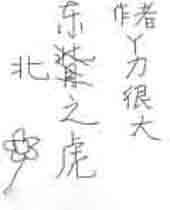 作者丫力很大
东北之虎